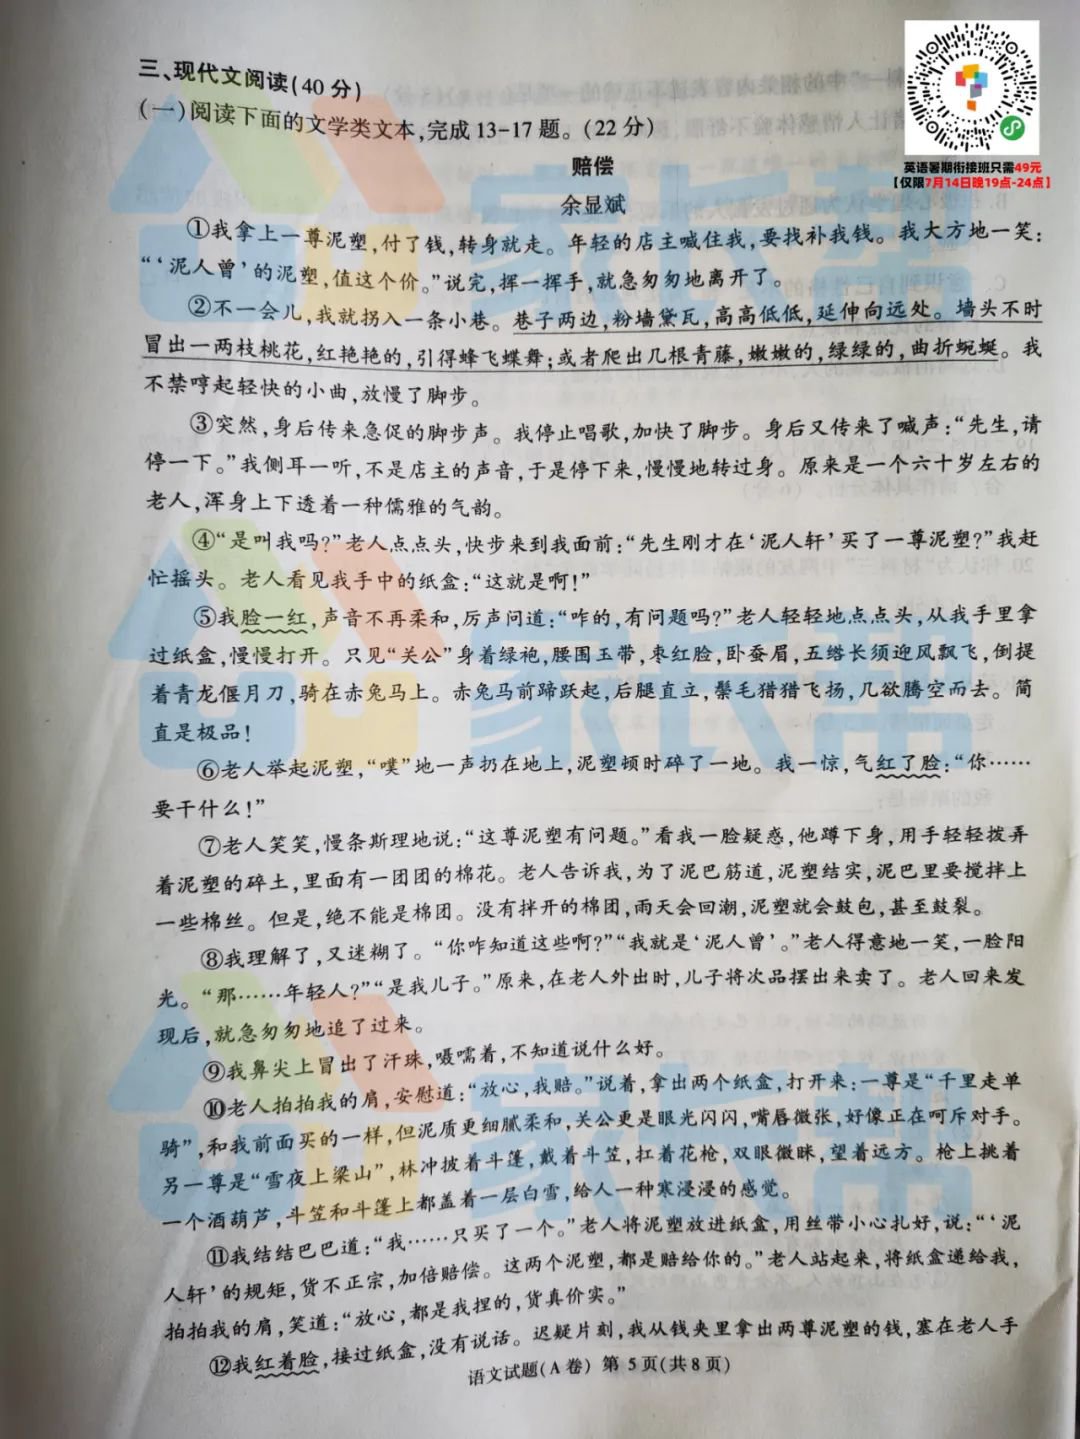 英语暑期衔接班只需49元
【仅限7月14日晚19点-24点】
三、现代文阅读(40分)
(一)阅读下面的文学类文本,完成13-17题。(22分)
赔偿
余显斌
①我拿上一尊泥塑,付了钱,转身就走。年轻的店主喊住我,要找补我钱。我大方地一笑:
“‘泥人曾’的泥塑,值这个价。”说完,挥一挥手,就急匆匆地离开了。
②不一会儿,我就拐入一条小巷。巷子两边,粉墙黛瓦,高高低低,延伸向远处。墙头不时
冒出一两枝桃花,红艳艳的,引得蜂飞蝶舞;或者爬出几根青藤,嫩嫩的,绿绿的,曲折蜿蜒。我
不禁哼起轻快的小曲,放慢了脚步。
③突然,身后传来急促的脚步声。我停止唱歌,加快了脚步。身后又传来了喊声:“先生,请
停一下。”我侧耳一听,不是店主的声音,于是停下来,慢慢地转过身。原来是一个六十岁左右的
老人,浑身上下透着一种儒雅的气韵。
④“是叫我吗?”老人点点头,快步来到我面前:“先生刚才在‘泥人轩’买了一尊泥塑?”我赶
忙摇头。老人看见我手中的纸盒:“这就是啊!”
⑤我脸一红,声音不再柔和,厉声问道:“咋的,有问题吗?”老人轻轻地点点头,从我手里拿
过纸盒,慢慢打开。只见“关公”身着绿袍,腰围玉带,枣红脸,卧蚕眉,五绺长须迎风飘飞,倒提
着青龙偃月刀,骑在赤兔马上。赤兔马前蹄跃起,后腿直立,鬃毛猎猎飞扬,几欲腾空而去。简
直是极品!
⑥老人举起泥塑,“噗”地一声扔在地上,泥塑顿时碎了一地。我一惊,气红了脸:“你……
要干什么!”
⑦老人笑笑,慢条斯理地说:“这尊泥塑有问题。”看我一脸疑惑,他蹲下身,用手轻轻拨弄
着泥塑的碎土,里面有一团团的棉花。老人告诉我,为了泥巴筋道,泥塑结实,泥巴里要搅拌上
一些棉丝。但是,绝不能是棉团。没有拌开的棉团,雨天会回潮,泥塑就会鼓包,甚至鼓裂。
⑧我理解了,又迷糊了。“你咋知道这些啊?”“我就是‘泥人曾’。”老人得意地一笑,一脸阳
光。“那……年轻人?”“是我儿子。”原来,在老人外出时,儿子将次品摆出来卖了。老人回来发
现后,就急匆匆地追了过来。
⑨我鼻尖上冒出了汗珠,嗫嚅着,不知道说什么好。
⑩老人拍拍我的肩,安慰道:“放心,我赔。”说着,拿出两个纸盒,打开来:一尊是“千里走单
骑”,和我前面买的一样,但泥质更细腻柔和,关公更是眼光闪闪,嘴唇微张,好像正在呵斥对手。
另一尊是“雪夜上梁山”,林冲披着斗篷,戴着斗笠,扛着花枪,双眼微眯,望着远方。枪上挑着
一个酒葫芦,斗笠和斗篷上都盖着一层白雪,给人一种寒浸浸的感觉。
⑪我结结巴巴道:“我……只买了一个。”老人将泥塑放进纸盒,用丝带小心扎好,说:“‘泥
人轩’的规矩,货不正宗,加倍赔偿。这两个泥塑,都是赔给你的。”老人站起来,将纸盒递给我,
拍拍我的肩,笑道:“放心,都是我捏的,货真价实。”
⑫我红着脸,接过纸盒,没有说话。迟疑片刻,我从钱夹里拿出两尊泥塑的钱,塞在老人手
语文试题(A卷) 第5页(共8页)
家长帮
家长帮
家长帮